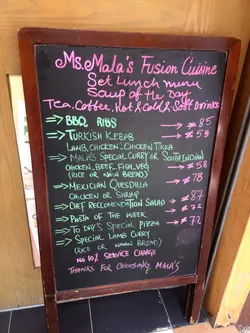 Ms. Mala's Fusion Cuisine
Set Lunch menu
Soup of the Day
Tea, Coffee, Hot & Cold & Soft Drinks
⇒ BBQ RIBS → 85
⇒ TURKISH KEBAB → 58
LAMB, CHICKEN - CHICKEN TIKKA
⇒ MALA'S SPECIAL CURRY OR SOUTH INDIAN
CHICKEN, BEEF, FISH, VEG → 58
(RICE OR NAAN BREAD)
⇒ MEXICAN QUESDILLA → 78
CHICKEN OR SHRIMP
⇒ CHEF RECCOMENDATION SALAD → 87
⇒ PASTA OF THE WEEK → 72
⇒ TO DAY'S SPECIAL PIZZA → 72
⇒ SPECIAL LAMB CURRY
(RICE OR NAAN BREAD)
NO 10% SERVICE CHARGE
THANKS FOR CHOOSING MALA'S